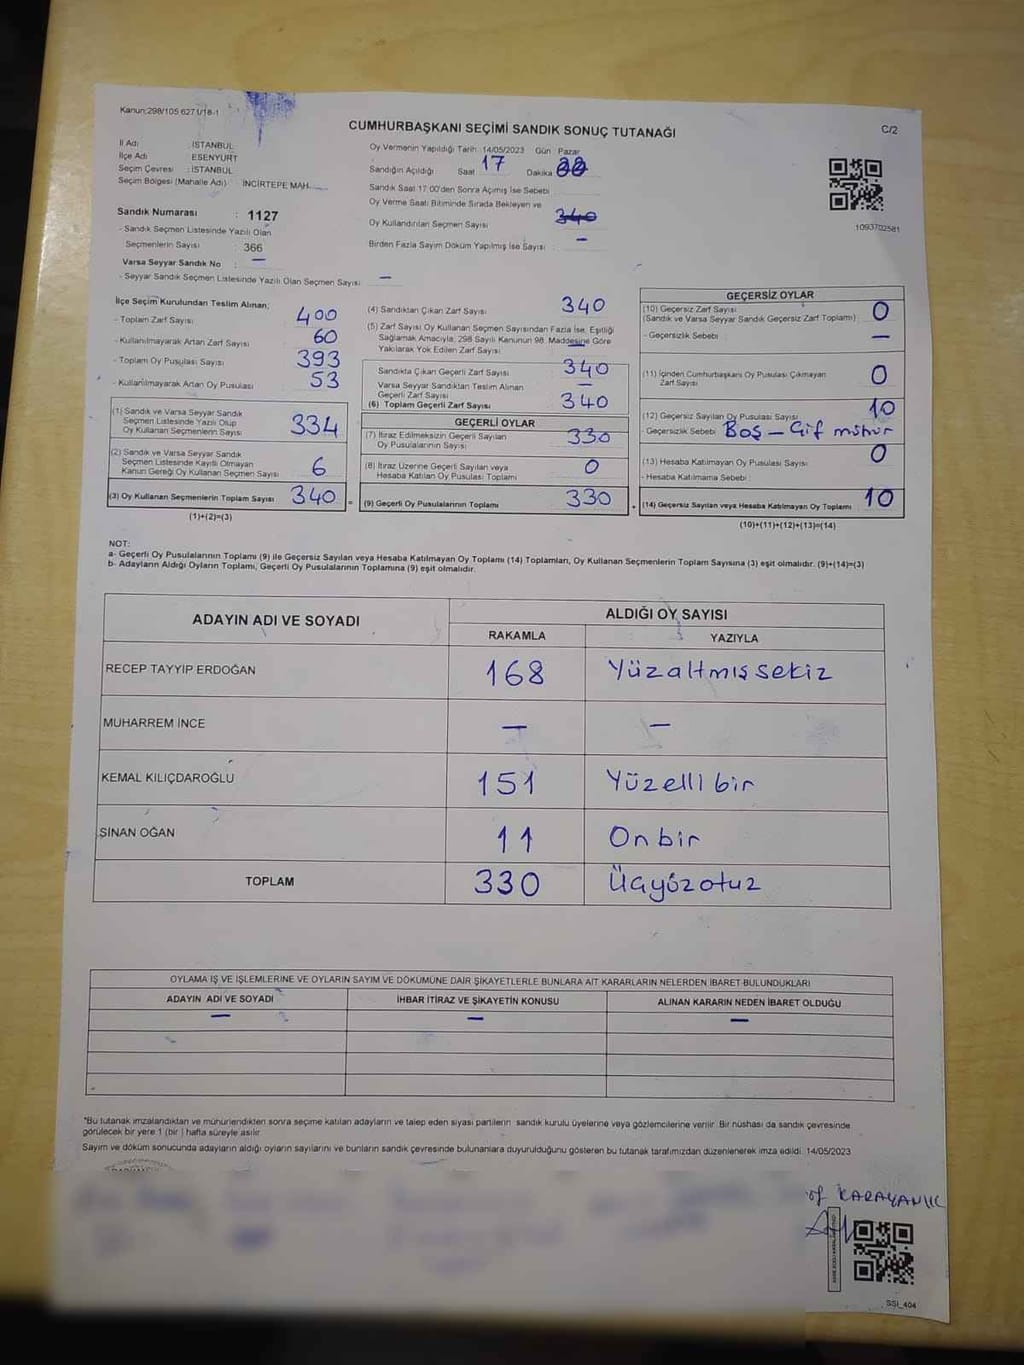 Kanun:298/105 6271/18-1
CUMHURBAŞKANI SEÇİMİ SANDIK SONUÇ TUTANAĞI
C/2
İl Adı : İSTANBUL
İlçe Adı : ESENYURT
Seçim Çevresi : İSTANBUL
Seçim Bölgesi (Mahalle Adı) : İNCİRTEPE MAH.
Sandık Numarası : 1127
- Sandık Seçmen Listesinde Yazılı Olan
Seçmenlerin Sayısı : 366
Varsa Seyyar Sandık No : —
- Seyyar Sandık Seçmen Listesinde Yazılı Olan Seçmen Sayısı : —
Oy Vermenin Yapıldığı Tarih :14/05/2023 Gün : Pazar
Sandığın Açıldığı Saat 17 Dakika
Sandık Saat 17:00'den Sonra Açılmış İse Sebebi
Oy Verme Saati Bitiminde Sırada Bekleyen ve
Oy Kullandırılan Seçmen Sayısı 340
Birden Fazla Sayım Döküm Yapılmış İse Sayısı : —
1093702581
İlçe Seçim Kurulundan Teslim Alınan;
- Toplam Zarf Sayısı 400
- Kullanılmayarak Artan Zarf Sayısı 60
- Toplam Oy Pusulası Sayısı 393
- Kullanılmayarak Artan Oy Pusulası 53
(1) Sandık ve Varsa Seyyar Sandık
Seçmen Listesinde Yazılı Olup
Oy Kullanan Seçmenlerin Sayısı 334
(2) Sandık ve Varsa Seyyar Sandık
Seçmen Listesinde Kayıtlı Olmayan
Kanun Gereği Oy Kullanan Seçmen Sayısı 6
(3) Oy Kullanan Seçmenlerin Toplam Sayısı 340 =
(1)+(2)=(3)
(4) Sandıktan Çıkan Zarf Sayısı 340
(5) Zarf Sayısı Oy Kullanan Seçmen Sayısından Fazla İse, Eşitliği
Sağlamak Amacıyla, 298 Sayılı Kanunun 98. Maddesine Göre
Yakılarak Yok Edilen Zarf Sayısı —
Sandıkta Çıkan Geçerli Zarf Sayısı 340
Varsa Seyyar Sandıktan Teslim Alınan
Geçerli Zarf Sayısı —
(6) Toplam Geçerli Zarf Sayısı 340
GEÇERLİ OYLAR
(7) İtiraz Edilmeksizin Geçerli Sayılan
Oy Pusulalarının Sayısı 330
(8) İtiraz Üzerine Geçerli Sayılan veya
Hesaba Katılan Oy Pusulası Toplamı 0
(9) Geçerli Oy Pusulalarının Toplamı 330 +
GEÇERSİZ OYLAR
(10) Geçersiz Zarf Sayısı 0
(Sandık ve Varsa Seyyar Sandık Geçersiz Zarf Toplamı)
- Geçersizlik Sebebi : —
(11) İçinden Cumhurbaşkanı Oy Pusulası Çıkmayan
Zarf Sayısı 0
(12) Geçersiz Sayılan Oy Pusulası Sayısı 10
- Geçersizlik Sebebi Boş — Çif mühür
(13) Hesaba Katılmayan Oy Pusulası Sayısı 0
- Hesaba Katılmama Sebebi :
(14) Geçersiz Sayılan veya Hesaba Katılmayan Oy Toplamı 10
(10)+(11)+(12)+(13)=(14)
NOT:
a- Geçerli Oy Pusulalarının Toplamı (9) ile Geçersiz Sayılan veya Hesaba Katılmayan Oy Toplamı (14) Toplamları, Oy Kullanan Seçmenlerin Toplam Sayısına (3) eşit olmalıdır. (9)+(14)=(3)
b- Adayların Aldığı Oyların Toplamı, Geçerli Oy Pusulalarının Toplamına (9) eşit olmalıdır.
ADAYIN ADI VE SOYADI
ALDIĞI OY SAYISI
RAKAMLA YAZIYLA
RECEP TAYYİP ERDOĞAN 168 Yüzaltmışsekiz
MUHARREM İNCE — —
KEMAL KILIÇDAROĞLU 151 Yüzelli bir
SİNAN OĞAN 11 On bir
TOPLAM 330 Üçyüzotuz
OYLAMA İŞ VE İŞLEMLERİNE VE OYLARIN SAYIM VE DÖKÜMÜNE DAİR ŞİKAYETLERLE BUNLARA AİT KARARLARIN NELERDEN İBARET BULUNDUKLARI
ADAYIN ADI VE SOYADI İHBAR İTİRAZ VE ŞİKAYETİN KONUSU ALINAN KARARIN NEDEN İBARET OLDUĞU
— — —
*Bu tutanak imzalandıktan ve mühürlendikten sonra seçime katılan adayların ve talep eden siyasi partilerin sandık kurulu üyelerine veya gözlemcilerine verilir. Bir nüshası da sandık çevresinde
görülecek bir yere 1 (bir ) hafta süreyle asılır.
Sayım ve döküm sonucunda adayların aldığı oyların sayılarını ve bunların sandık çevresinde bulunanlara duyurulduğunu gösteren bu tutanak tarafımızdan düzenlenerek imza edildi. 14/05/2023
SSI_404